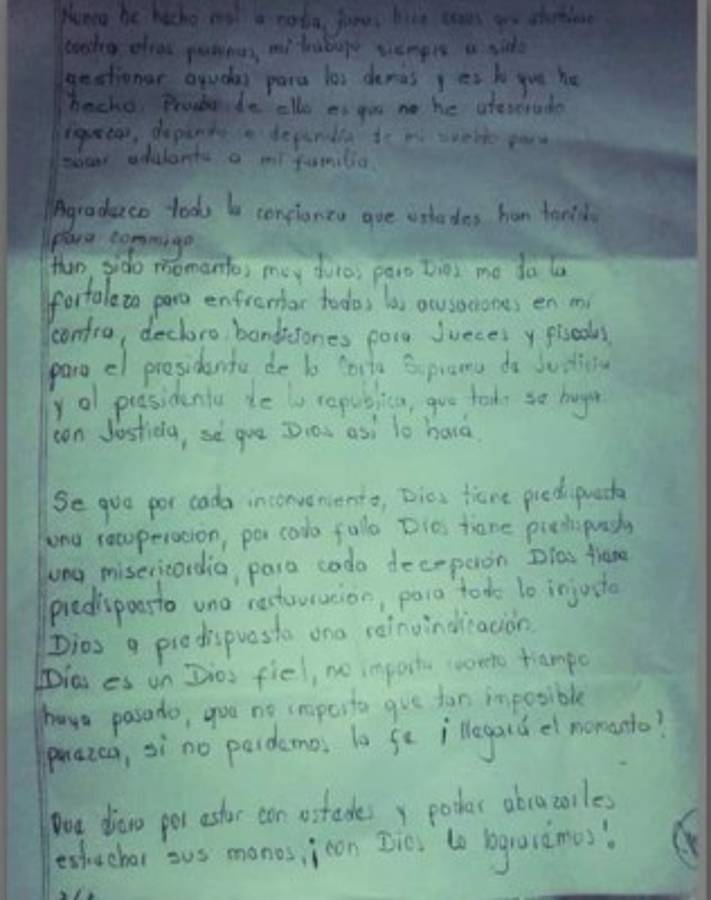 Nunca he hecho mal a nadie, jamas hice cosas que atentaran
contra otras personas, mi trabajo siempre a sido
gestionar ayudas para los demás y es lo que he
hecho. Prueba de ello es que no he atesorado
riquezas, dependo o dependía de mi sueldo para
sacar adelante a mi familia.
Agradezco toda la confianza que ustedes han tenido
para commigo
Han sido momentos muy duros pero Dios me da la
fortaleza para enfrentar todas las acusaciones en mi
contra, declaro bendiciones para Jueces y fiscales,
para el presidente de la Corte Suprema de Justicia
y al presidente de la republica, que todo se haga
con Justicia, sé que Dios así lo hará.
Se que por cada inconveniente, Dios tiene predispuesta
una recuperación, por cada fallo Dios tiene predispuesta
una misericordia, para cada decepción Dios tiene
predispuesto una restauración, para todo lo injusto
Dios a predispuesto una reinvindicación.
Dios es un Dios fiel, no importa cuanto tiempo
haya pasado, que no importa que tan imposible
parezca, si no perdemos la fe ¡llegará el momento!
Que diera por estar con ustedes y poder abrazarles
estrechar sus manos, ¡con Dios lo lograrémos!